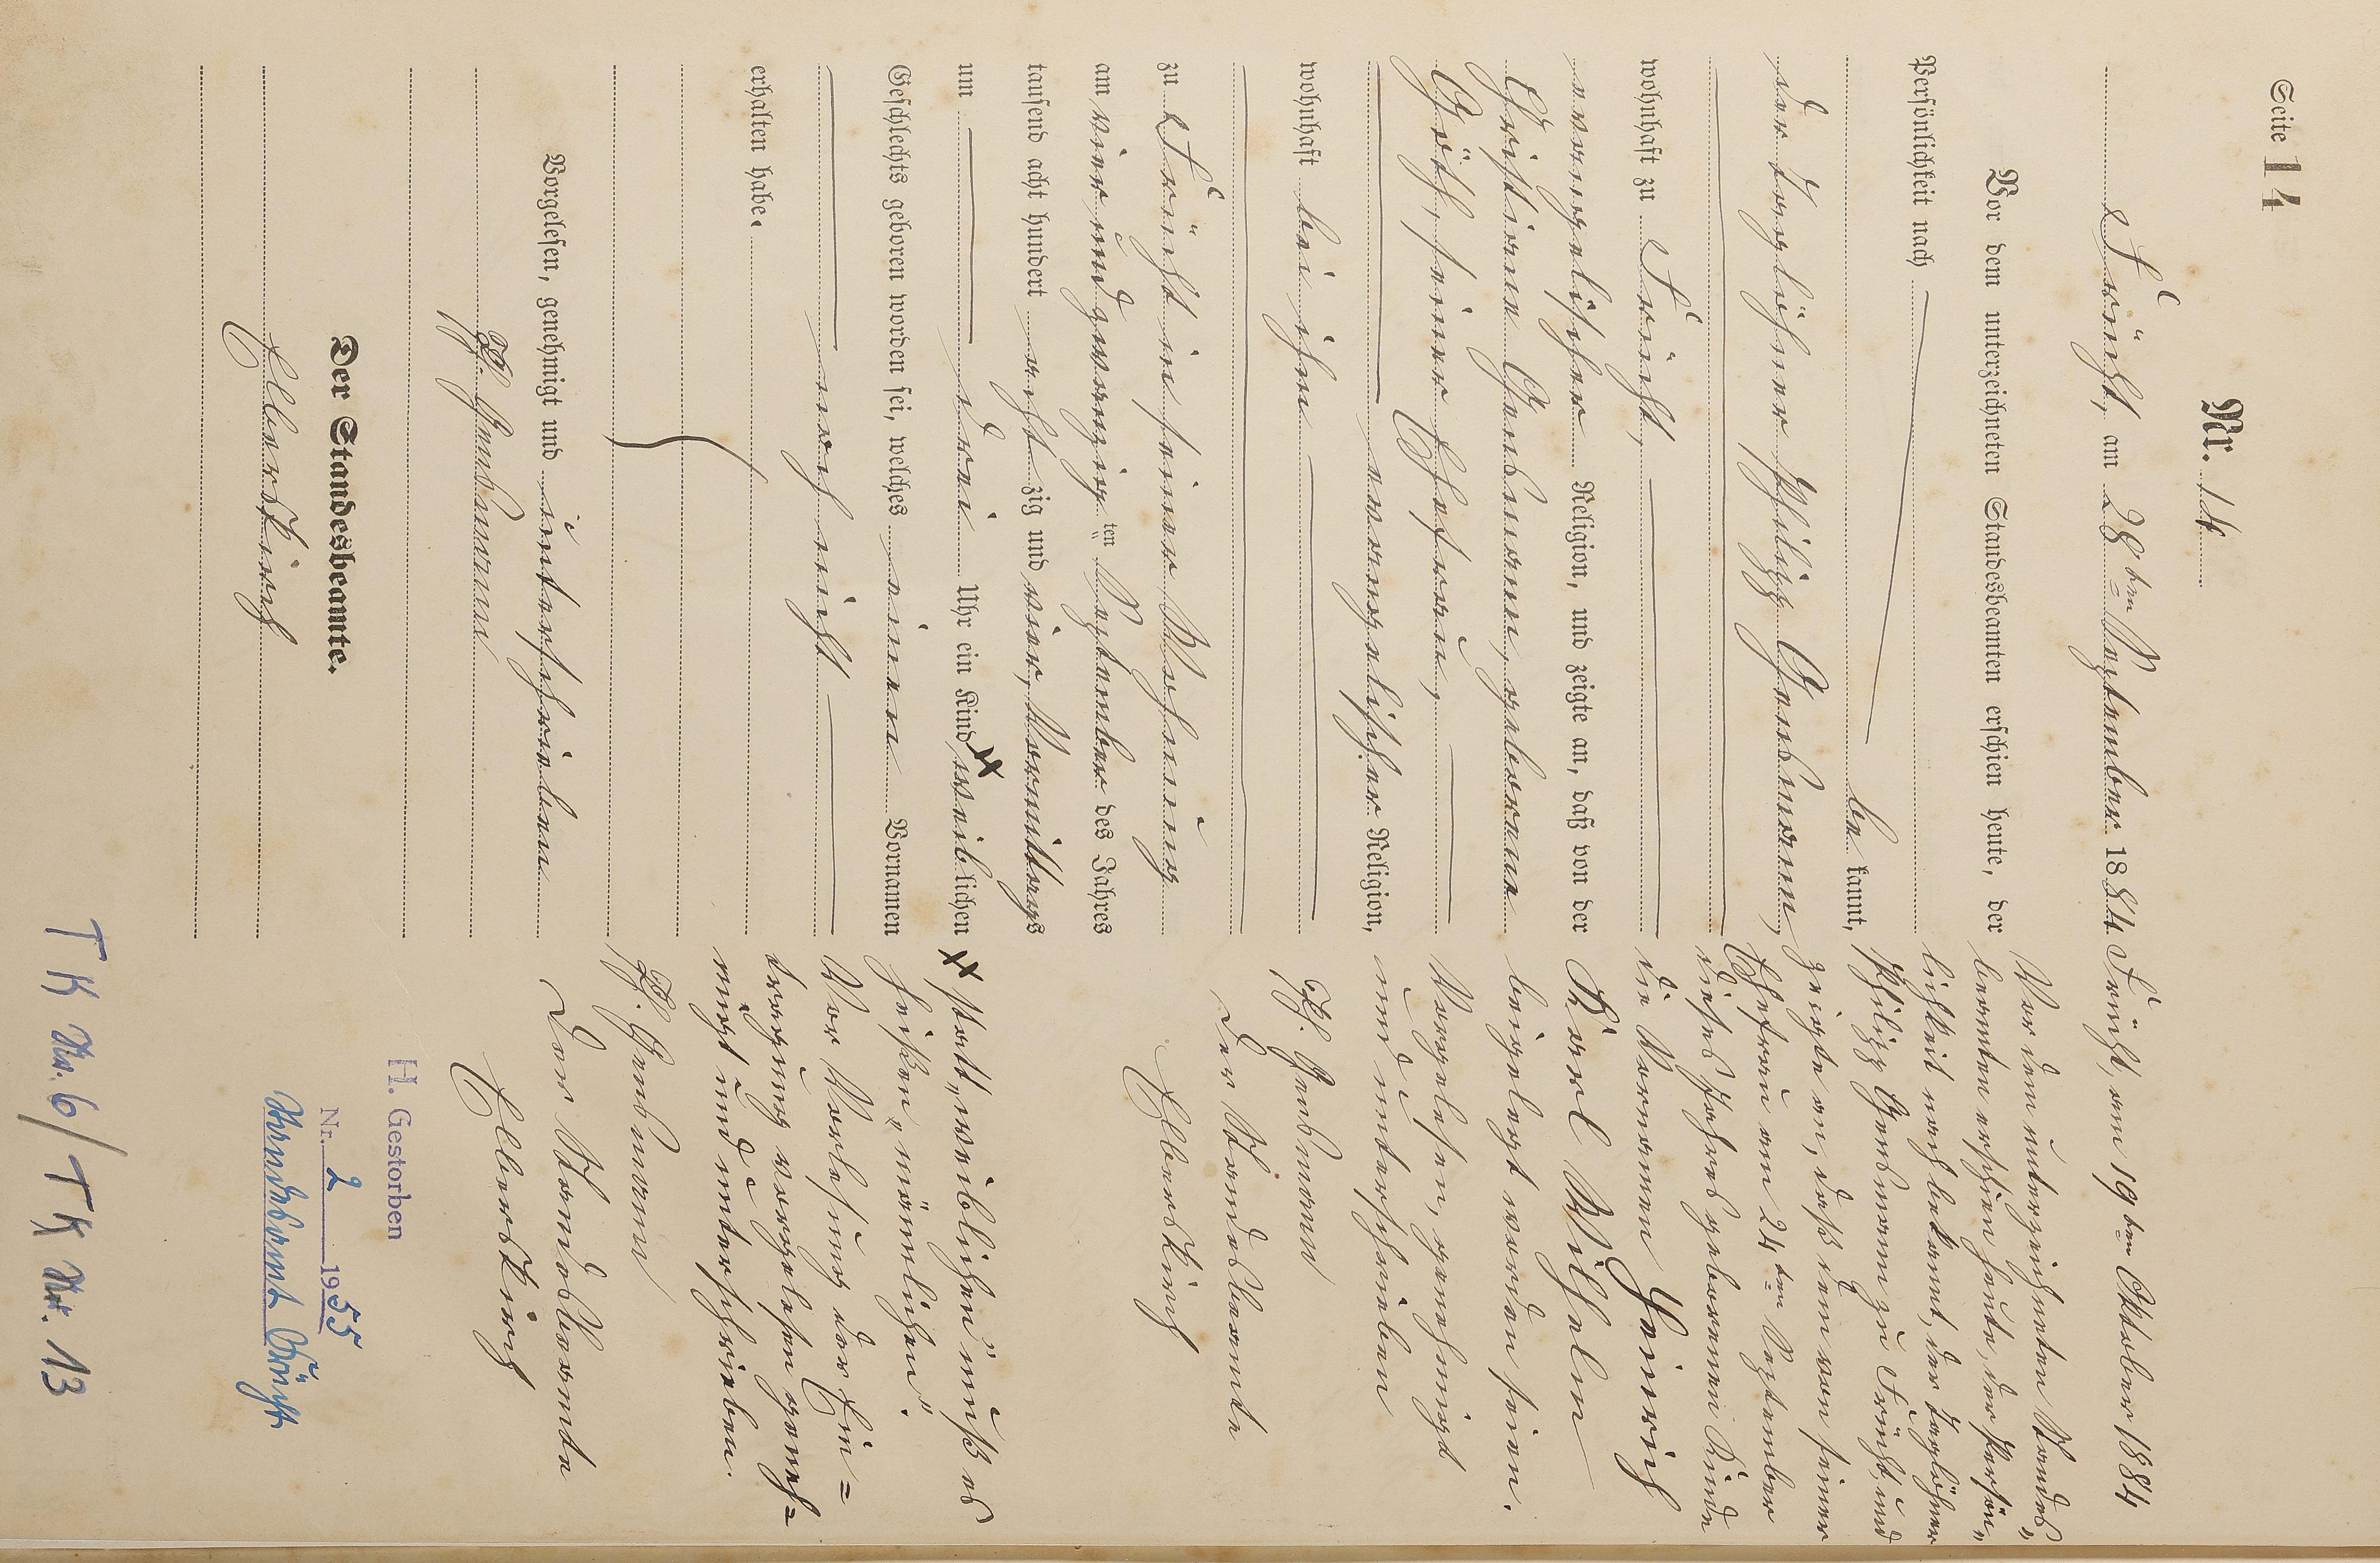 Seite 14
Nr. 14
Frücht, am 28ten September 1884
Vor dem unterzeichneten Standesbeamten erschien heute, der
Persönlichkeit nach
be kannt,
der Taglöhner Philipp Gensmann,
wohnhaft zu Frücht,
evangelischer Religion, und zeigte an, daß von der
Christiane Gensmann, geborene
Göth, seiner Ehefrau,
evangelischer Religion,
wohnhaft bei ihm
zu Frücht in seiner Wohnung
am vier und zwanzig ten September des Jahres
tausend acht hundert acht zig und vier, Vormittags
um drei Uhr ein Kind weiblichen
Geschlechts geboren worden sei, welches einen Vornamen
noch nicht
erhalten habe.
Vorgelesen, genehmigt und unterschrieben
Ph. Gensmann
Der Standesbeamte.
Elberskirch
Frücht, am 19ten Oktober 1884
Vor dem unterzeichneten Standes„
beamten erschien heute, der Persön„
lichkeit nach bekannt, der Taglöhner
Philipp Gensmann zu Frücht, und
zeigte an, daß dem von seiner
Ehefrau am 24ten September
dieses Jahres geborenen Kinde
die Vornamen Heinrich
Karl Wilhelm
beigelegt worden seien.
Vorgelesen, genehmigt
und unterschrieben
Ph. Gensmann
Der Standesbeamte
Elberskirch
statt „weiblichen" muß es
heißen „männlichen".
Vor Vorlesung der Ein=
tragung vorgelesen geneh=
migt und unterschrieben.
Ph. Gensmann
Der Standesbeamte
Elberskirch
H. Gestorben
Nr. 2 1955
Standesamt Frücht
TK Nr. 6/TK Nr. 13